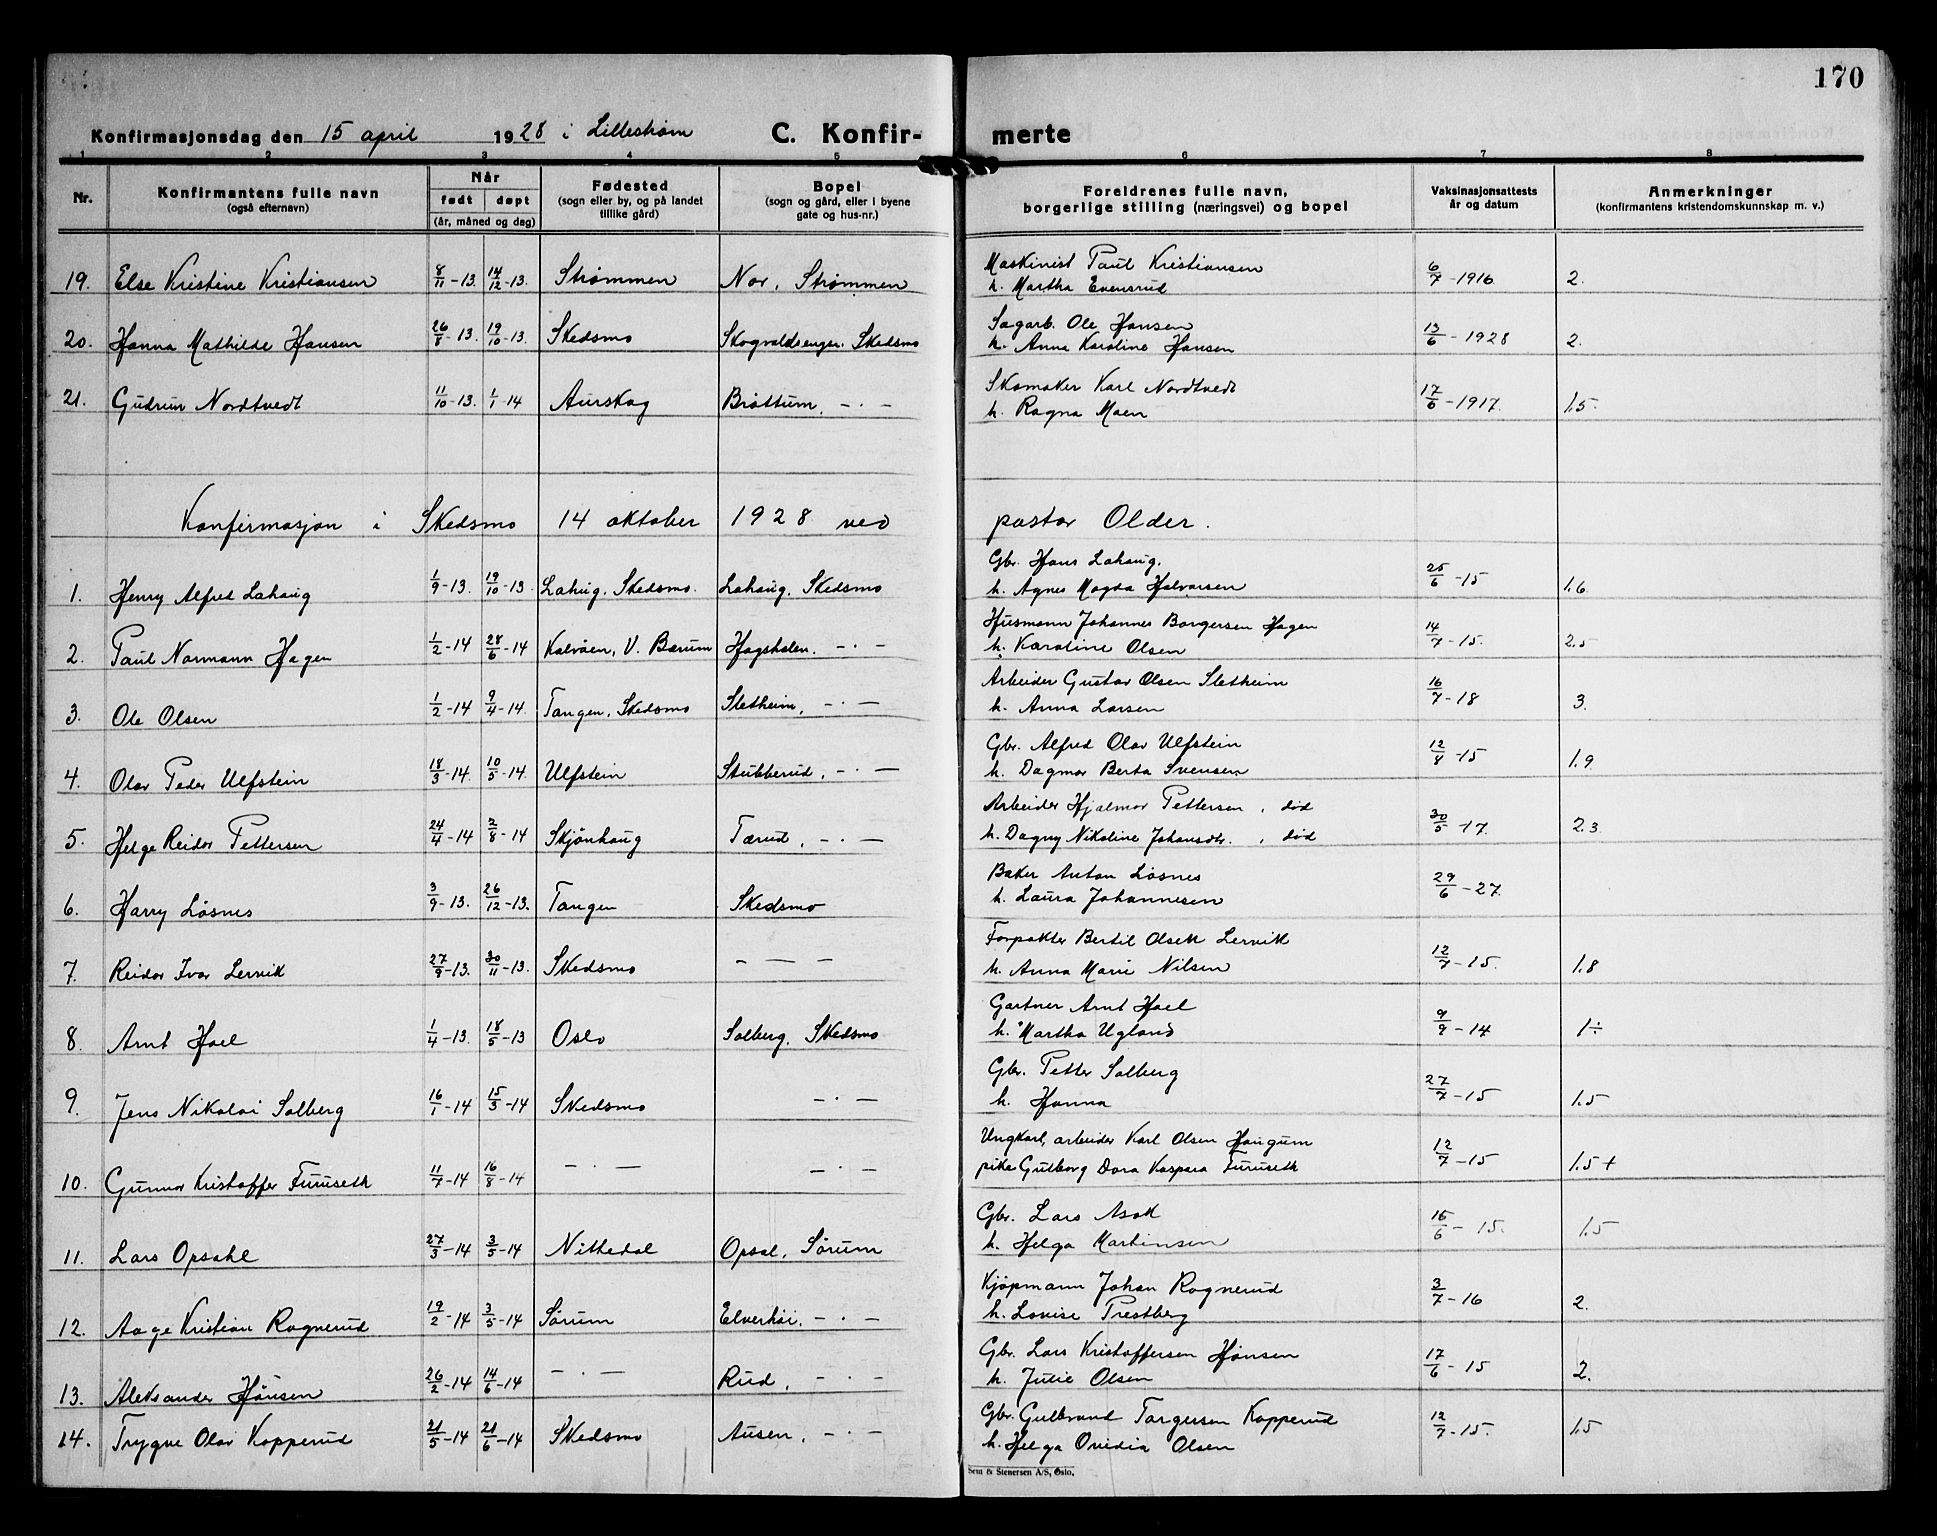 170
Konfirmasjonsdag den 15 april 1928 i Lillestrøm C. Konfir- merte
1 2 3 4 5 6 7 8
Nr. Konfirmantens fulle navn (også efternavn) Når født døpt (år, måned og dag) Fødested (sogn eller by, og på landet tillike gård) Bopel (sogn og gård, eller i byene gate og hus-nr.) Foreldrenes fulle navn, borgerlige stilling (næringsvei) og bopel Vaksinasjonsattests år og datum Anmerkninger (konfirmantens kristendomskunnskap m. v.)
19. Else Kristine Kristiansen 8/11-13. 14/12-13. Strømmen Nor, Strømmen Maskinist Paul Kristiansen 6/7-1916 2.
h. Martha Evensrud
20. Hanna Mathilde Hansen 26/8-13. 19/10-13. Skedsmo Skogvoldsenger. Skedsmo Sagarb. Ole Hansen 13/6-1928 2.
h. Anna Karoline Hansen
21. Gudrun Nordtvedt 11/10-13. 1/1-14 Aurskog Brøttum, -·- Skomaker Karl Nordtvedt 17/6-1917. 1.5.
h. Ragna Moen
Konfirmasjon i Skedsmo 14 oktober 1928 ved pastor Older.
1. Henry Alfred Lahaug 1/9-13. 19/10-13. Lahug, Skedsmo. Lahaug, Skedsmo Gbr. Hans Lahaug. 25/6-15 1.6
h. Agnes Magda Halvorsen
2. Paul Normann Hagen 1/2-14 28/6-14 Kalvøen, V. Bærum Hagshalen. -·- Husmann Johannes Borgersen Hagen 14/7-15. 2.5
h. Karoline Olsen
3. Ole Olsen 1/2-14 9/4-14. Tangen, Skedsmo Sletheim, -·- Arbeider Gustav Olsen Sletheim 16/7-18 3.
h. Anna Larsen
4. Olav Peder Ulfstein 18/3-14. 10/5-14. Ulfstein Stubberud, -·- Gbr. Alfred Olav Ulfstein 12/8-15 1.9
h. Dagmar Berta Svensen
5. Helge Reidar Pettersen 24/4-14 2/8-14 Skjønhaug Tærud, -·- Arbeider Hjalmar Pettersen, død 30/5-17. 2.3
h. Dagny Nikoline Johansdtr., død
6. Harry Løsnes 3/9-13. 26/12-13. Tangen Skedsmo Baker Anton Løsnes 29/6-27.
h. Laura Johannesen
7. Reidar Ivar Lervik 27/9-13. 30/11-13. Skedsmo - — - Forpakter Bertil Olsen Lervik 12/7-15. 1.8
h. Anna Marie Nilsen
8. Arnt Hoel 1/4-13. 18/5-13 Oslo Solberg, Skedsmo Gartner Arnt Hoel 9/9-14 1÷
h. Martha Ugland
9. Jens Nikolai Solberg 16/1-14 15/3-14 Skedsmo -·- Gbr. Petter Solberg 27/7-15 1.5
h. Hanna
10. Gunnar Kristoffer Furuseth 11/7-14 16/8-14 -·- -·- Ungkarl, arbeider Karl Olsen Haugum 12/7-15 1.5+
pike Gulborg Dora Kaspara Furuseth
11. Lars Opsahl 27/3-14 3/5-14 Nittedal Opsal, Sørum Gbr. Lars Asak 15/6-15. 1.5
h. Helga Martinsen
12. Aage Kristian Rognerud 19/2-14 3/5-14 Sørum Elverhøi, -·- Kjøpmann Johan Rognerud 3/7-16 2.
h. Lovise Prestberg
13. Aleksander Hønsen 26/2-14 14/6-14 -·- Rud, -·- Gbr. Lars Kristoffersen Hønsen 17/6-15 2.
h. Julie Olsen
14. Trygve Olav Kopperud 21/5-14 21/6-14 Skedsmo Ausen, -·- Gbr. Gulbrand Torgersen Kopperud 12/7-15. 1.5
h. Helga Ovidia Olsen
Sem & Stenersen A/S, Oslo.